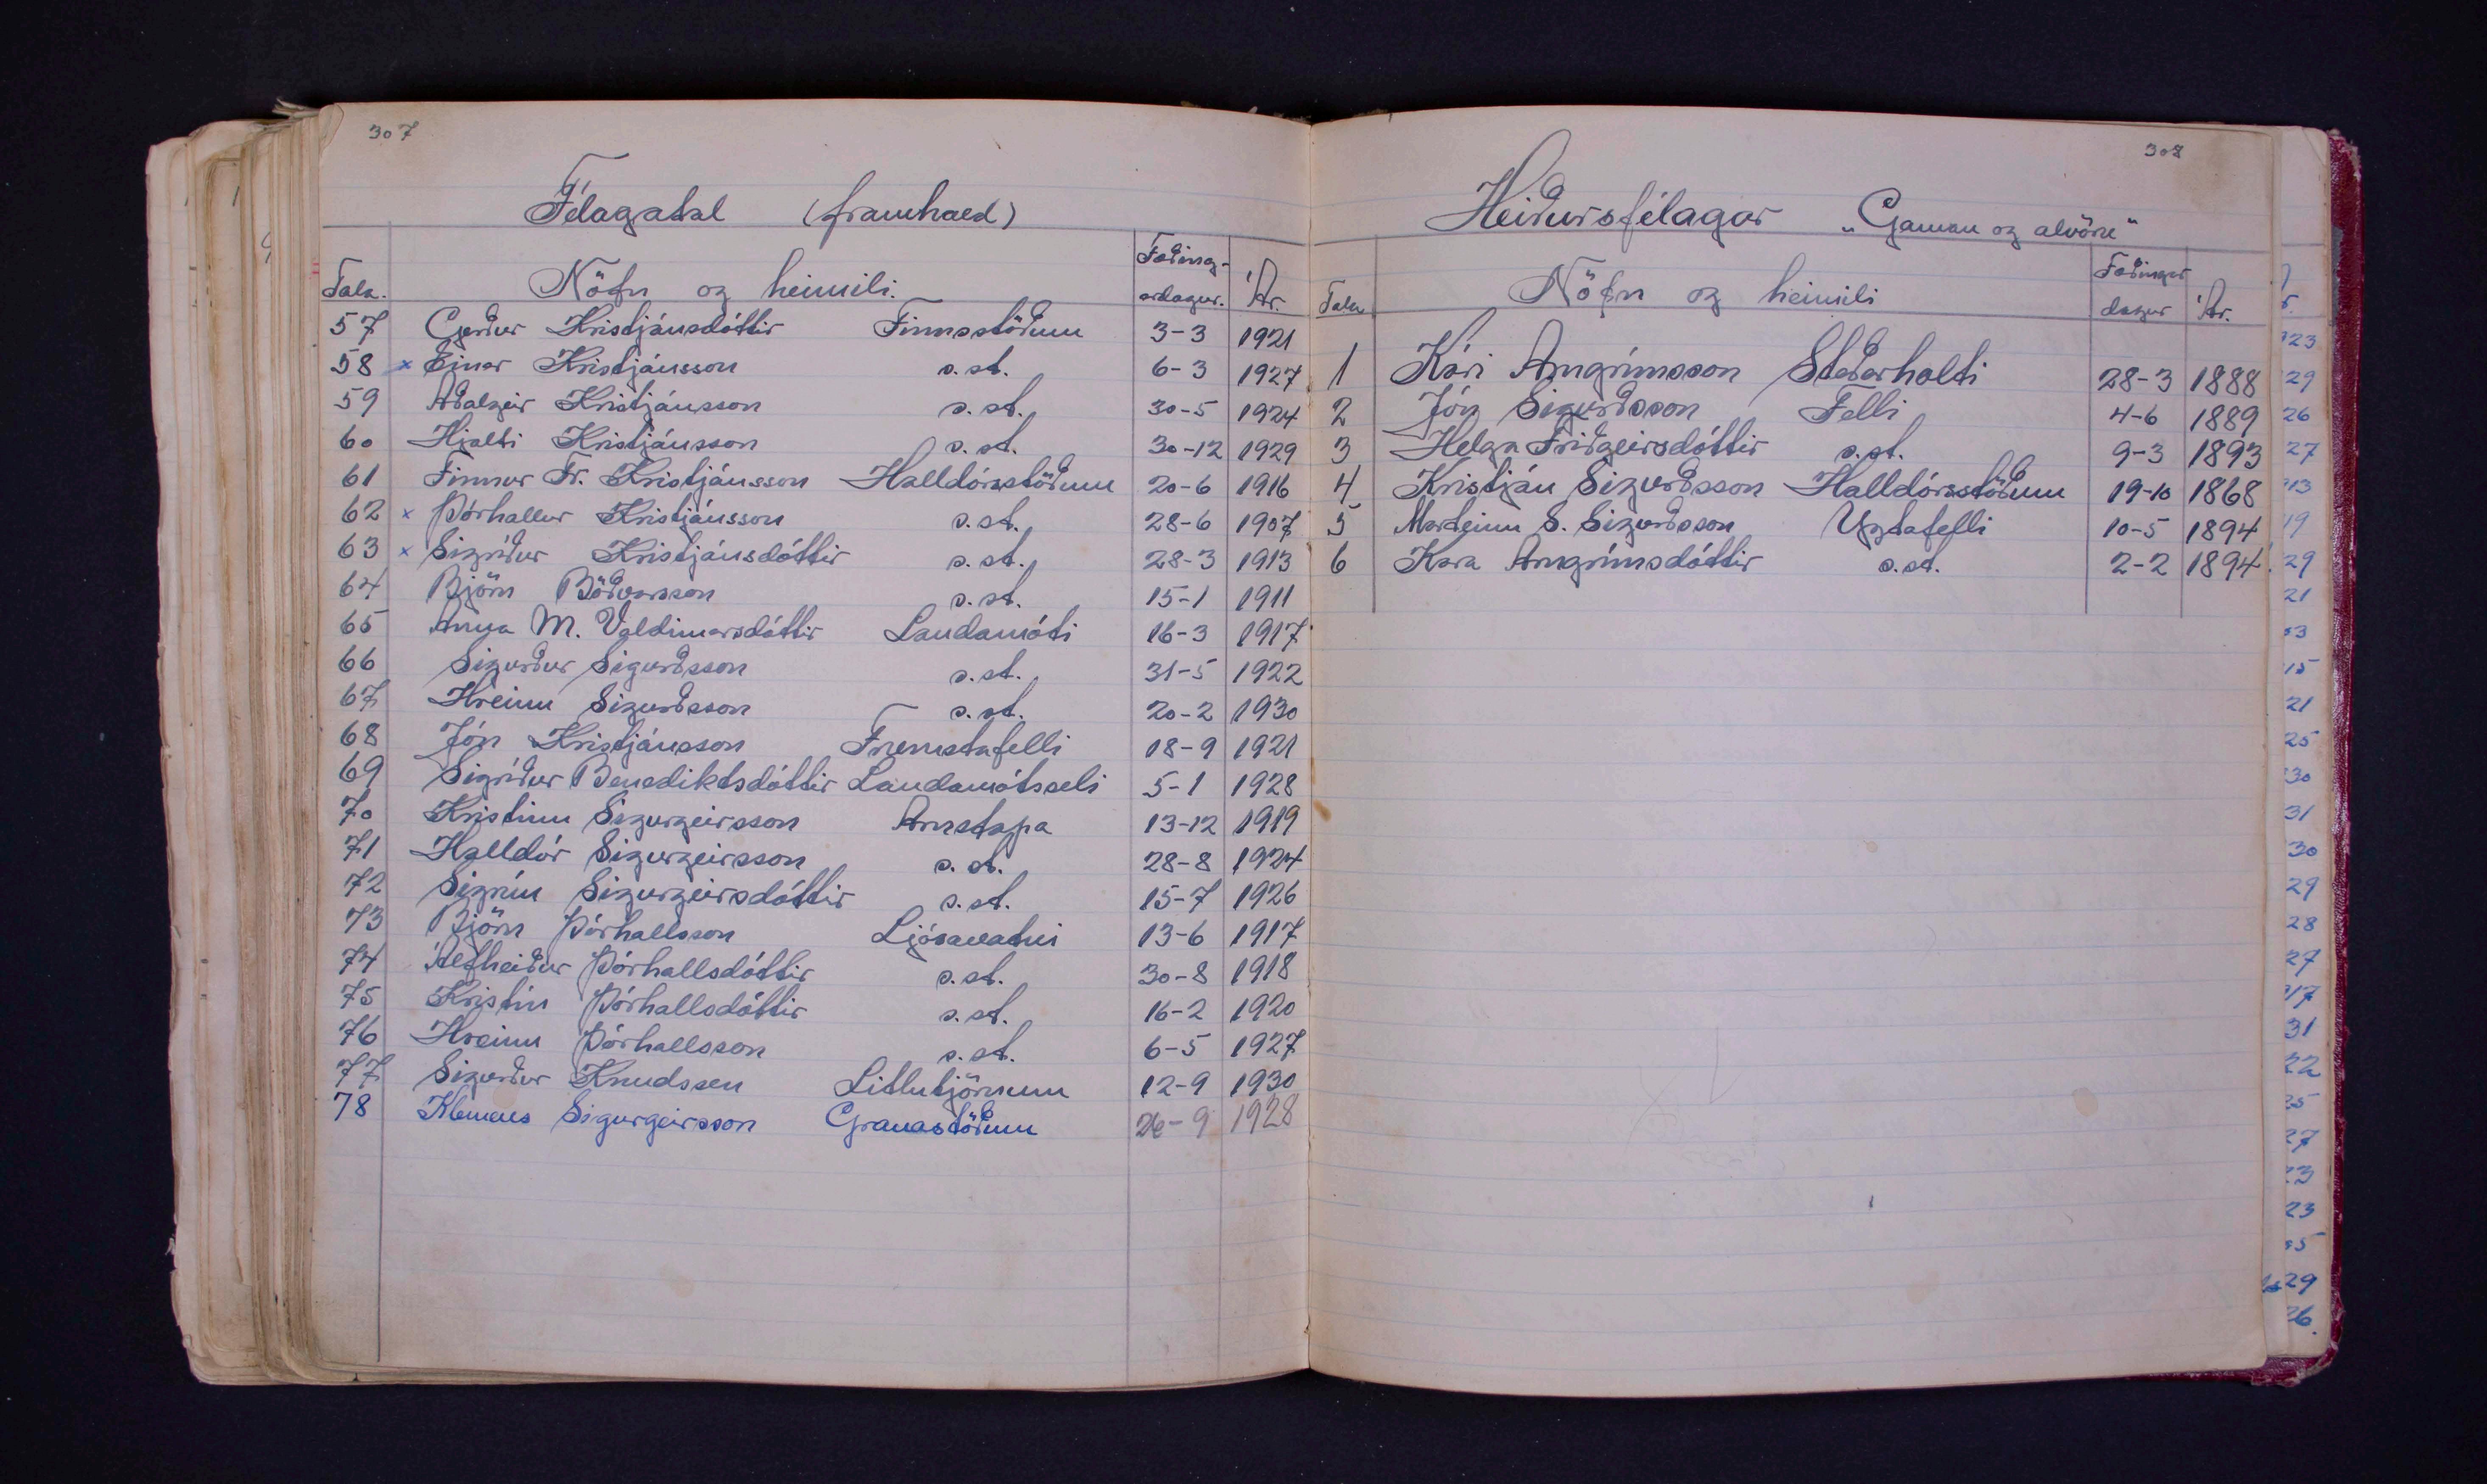 307
Félagatal (framhald)
Tala. Nöfn og heimili. Fæðingardagur. Ár.
57 Gerður Kristjánsdóttir Finnsstöðum 3-3 1921
58 x Einar Kristjánsson s. st. 6-3 1927
59 Aðalgeir Kristjánsson s. st. 30-5 1924
60 Hjalti Kristjánsson s. st. 30-12 1929
61 Finnur Fr. Kristjánsson Halldórsstöðum 20-6 1916
62 x Þórhallur Kristjánsson s. st. 28-6 1907
63 x Sigríður Kristjánsdóttir s. st. 28-3 1913
64 Björn Böðvarsson s. st. 15-1 1911
65 Anna M. Valdimarsdóttir Landamóti 16-3 1917
66 Sigurður Sigurðsson s. st. 31-5 1922
67 Hreinn Sigurðsson s. st. 20-2 1930
68 Jón Kristjánsson Fremstafelli 18-9 1921
69 Sigríður Benediktsdóttir Landamótsseli 5-1 1928
70 Kristinn Sigurgeirsson Arnstapa 13-12 1919
71 Halldór Sigurgeirsson s. st. 28-8 1924
72 Sigrún Sigurgeirsdóttir s. st. 15-7 1926
73 Björn Þórhallsson Ljósavatni 13-6 1917
74 Álfheiður Þórhallsdóttir s. st. 30-8 1918
75 Kristín Þórhallsdóttir s. st. 16-2 1920
76 Hreinn Þórhallsson s. st. 6-5 1927
77 Sigurður Knudssen Litlutjörnum 12-9 1930
78 Klemens Sigurgeirsson Granastöðum 26-9 1928
308
Heiðursfélagar „Gaman og alvöru"
Tala Nöfn og heimili Fæðingardagur Ár.
1 Kári Arngrímsson Staðarholti 28-3 1888
2 Jón Sigurðsson Felli 4-6 1889
3 Helga Friðgeirsdóttir s. st. 9-3 1893
4 Kristján Sigurðsson Halldórsstöðum 19-10 1868
5 Marteinn S. Sigurðsson Yztafelli 10-5 1894
6 Kara Arngrímsdóttir s. st. 2-2 1894